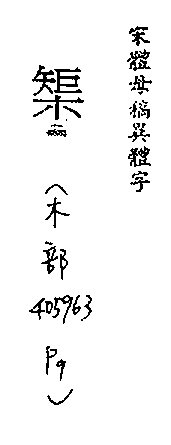 宋體母稿異體字
榘
(木部
405963
P9)